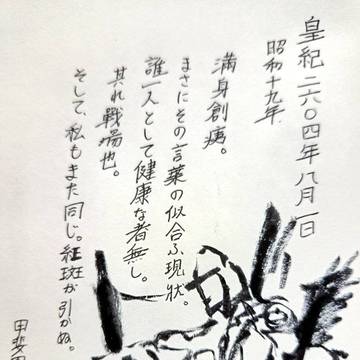 皇紀二六〇四年八月一日
昭和十九年
満身創痍。
まさにその言葉の似合ふ現状。
誰一人として健康な者無し。
其れ戦場也。
そして、私もまた同じ。紅斑が引かぬ。
甲斐